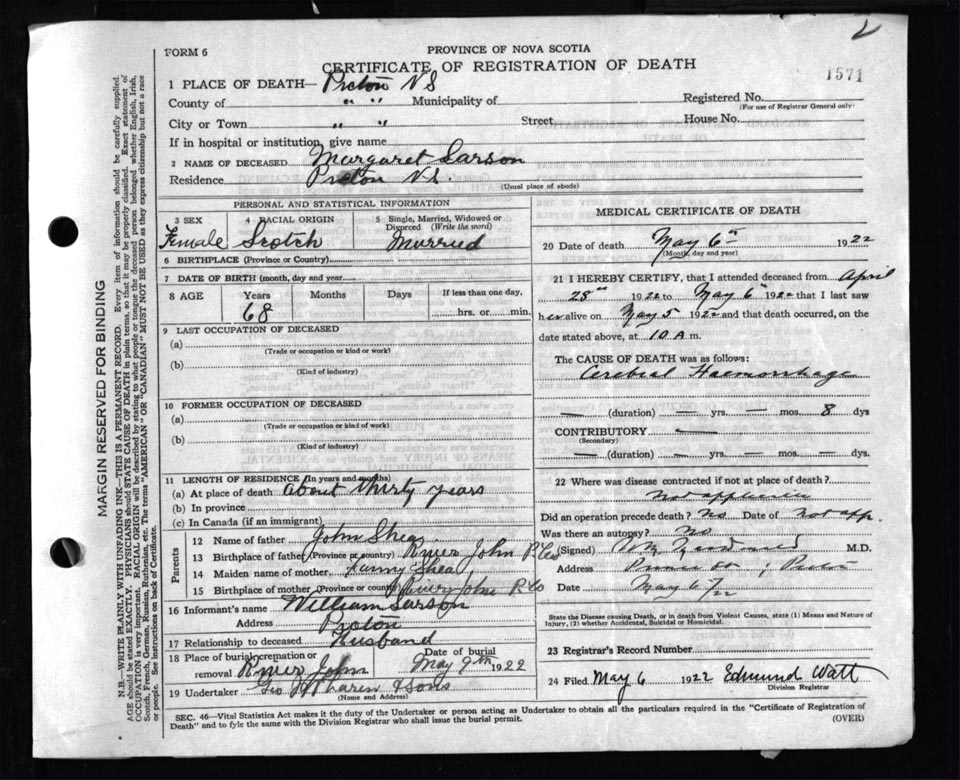 FORM 6
PROVINCE OF NOVA SCOTIA
CERTIFICATE OF REGISTRATION OF DEATH
1571
1 PLACE OF DEATH— Pictou N S
County of " " Municipality of Registered No.
(For use of Registrar General only)
City or Town " " Street House No.
If in hospital or institution, give name
2 NAME OF DECEASED Margaret Larson
Residence Pictou N.S.
(Usual place of abode)
PERSONAL AND STATISTICAL INFORMATION
3 SEX Female
4 RACIAL ORIGIN Scotch
5 Single, Married, Widowed or Divorced (Write the word) Married
6 BIRTHPLACE (Province or Country)
7 DATE OF BIRTH (month, day and year)
8 AGE Years Months Days If less than one day,
68 hrs. or min.
9 LAST OCCUPATION OF DECEASED
(a)
(Trade or occupation or kind or work)
(b)
(Kind of industry)
10 FORMER OCCUPATION OF DECEASED
(a)
(Trade or occupation or kind or work)
(b)
(Kind of industry)
11 LENGTH OF RESIDENCE (In years and months)
(a) At place of death About thirty years
(b) In province
(c) In Canada (if an immigrant)
Parents
12 Name of father John Shea
13 Birthplace of father (Province or country) River John P. Co
14 Maiden name of mother Fanny Shea
15 Birthplace of mother (Province or country) River John P. Co
16 Informant's name William Larson
Address Pictou
17 Relationship to deceased Husband
18 Place of burial, cremation or removal River John
Date of burial May 9th 1922
19 Undertaker Geo & Sons
(Name and Address)
MEDICAL CERTIFICATE OF DEATH
20 Date of death May 6th 1922
(Month, day and year)
21 I HEREBY CERTIFY, that I attended deceased from April
28th 1922 to May 6th 1922 that I last saw
her alive on May 5 1922 and that death occurred, on the
date stated above, at 10 A m.
The CAUSE OF DEATH was as follows:
Cerebral Haemorrhage
— (duration) — yrs. — mos. 8 dys
CONTRIBUTORY —
(Secondary)
— (duration) — yrs. — mos. — dys.
22 Where was disease contracted if not at place of death?
Not applicable
Did an operation precede death? No Date of Not app.
Was there an autopsy? No
(Signed) M.D.
Address Pictou
Date May 6 22
State the Disease causing Death, or in death from Violent Causes, state (1) Means and Nature of Injury, (2) whether Accidental, Suicidal or Homicidal.
23 Registrar's Record Number
24 Filed May 6 1922 Edmund Watt
Division Registrar
SEC. 46—Vital Statistics Act makes it the duty of the Undertaker or person acting as Undertaker to obtain all the particulars required in the "Certificate of Registration of
Death" and to fyle the same with the Division Registrar who shall issue the burial permit.
(OVER)
MARGIN RESERVED FOR BINDING
N.B.—WRITE PLAINLY WITH UNFADING INK—THIS IS A PERMANENT RECORD. Every item of information should be carefully supplied.
AGE should be stated EXACTLY. PHYSICIANS should STATE CAUSE OF DEATH in plain terms, so that it may be properly classified. Exact statement of
OCCUPATION is very important. RACIAL ORIGIN will be described by stating to what people or tongue the deceased person belonged whether English, Irish,
Scotch, French, German, Russian, Ruthenian, etc. The terms "AMERICAN" or "CANADIAN" MUST NOT BE USED as they express citizenship but not a race
or people. See instructions on back of Certificate.